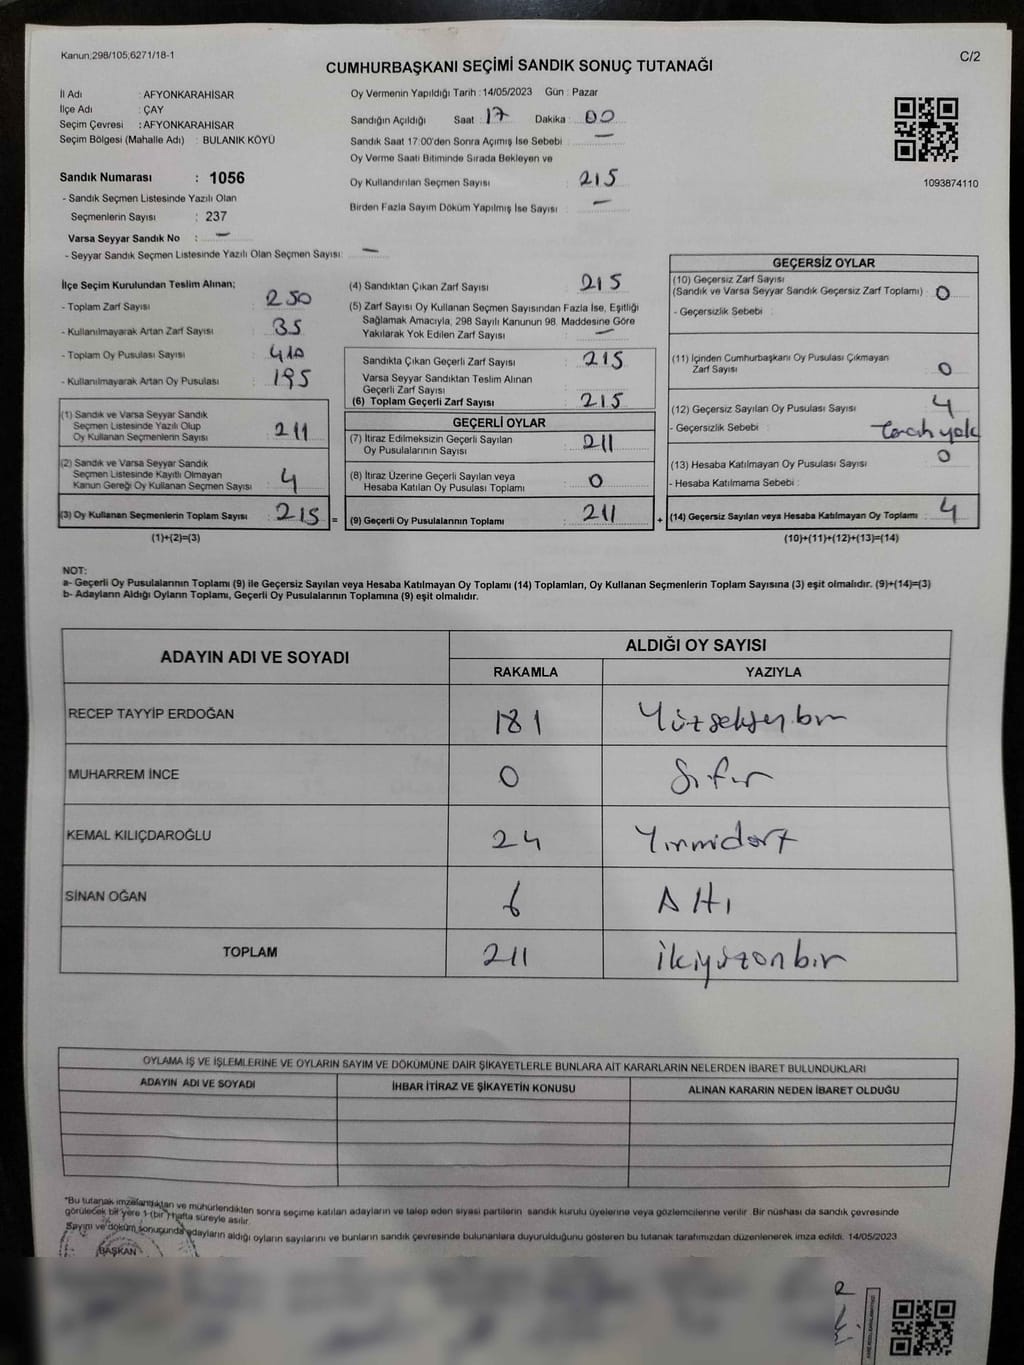 Kanun;298/105;6271/18-1
C/2
CUMHURBAŞKANI SEÇİMİ SANDIK SONUÇ TUTANAĞI
İl Adı : AFYONKARAHİSAR
İlçe Adı : ÇAY
Seçim Çevresi : AFYONKARAHİSAR
Seçim Bölgesi (Mahalle Adı) : BULANIK KÖYÜ
Sandık Numarası : 1056
- Sandık Seçmen Listesinde Yazılı Olan
Seçmenlerin Sayısı : 237
Varsa Seyyar Sandık No : –
- Seyyar Sandık Seçmen Listesinde Yazılı Olan Seçmen Sayısı: –
Oy Vermenin Yapıldığı Tarih : 14/05/2023 Gün : Pazar
Sandığın Açıldığı Saat : 17 Dakika : 00
Sandık Saat 17:00'den Sonra Açımış İse Sebebi : –
Oy Verme Saati Bitiminde Sırada Bekleyen ve
Oy Kullandırılan Seçmen Sayısı : 215
Birden Fazla Sayım Döküm Yapılmış İse Sayısı : –
1093874110
İlçe Seçim Kurulundan Teslim Alınan;
- Toplam Zarf Sayısı : 250
- Kullanılmayarak Artan Zarf Sayısı : 35
- Toplam Oy Pusulası Sayısı : 410
- Kullanılmayarak Artan Oy Pusulası : 195
(1) Sandık ve Varsa Seyyar Sandık
Seçmen Listesinde Yazılı Olup
Oy Kullanan Seçmenlerin Sayısı : 211
(2) Sandık ve Varsa Seyyar Sandık
Seçmen Listesinde Kayıtlı Olmayan
Kanun Gereği Oy Kullanan Seçmen Sayısı : 4
(3) Oy Kullanan Seçmenlerin Toplam Sayısı : 215 =
(1)+(2)=(3)
(4) Sandıktan Çıkan Zarf Sayısı : 215
(5) Zarf Sayısı Oy Kullanan Seçmen Sayısından Fazla İse, Eşitliği
Sağlamak Amacıyla, 298 Sayılı Kanunun 98. Maddesine Göre
Yakılarak Yok Edilen Zarf Sayısı : –
Sandıkta Çıkan Geçerli Zarf Sayısı : 215
Varsa Seyyar Sandıktan Teslim Alınan
Geçerli Zarf Sayısı :
(6) Toplam Geçerli Zarf Sayısı : 215
GEÇERLİ OYLAR
(7) İtiraz Edilmeksizin Geçerli Sayılan
Oy Pusulalarının Sayısı : 211
(8) İtiraz Üzerine Geçerli Sayılan veya
Hesaba Katılan Oy Pusulası Toplamı : 0
(9) Geçerli Oy Pusulalarının Toplamı : 211 +
GEÇERSİZ OYLAR
(10) Geçersiz Zarf Sayısı
(Sandık ve Varsa Seyyar Sandık Geçersiz Zarf Toplamı) : 0
- Geçersizlik Sebebi :
(11) İçinden Cumhurbaşkanı Oy Pusulası Çıkmayan
Zarf Sayısı : 0
(12) Geçersiz Sayılan Oy Pusulası Sayısı : 4
- Geçersizlik Sebebi : Tercih yok
(13) Hesaba Katılmayan Oy Pusulası Sayısı : 0
- Hesaba Katılmama Sebebi :
(14) Geçersiz Sayılan veya Hesaba Katılmayan Oy Toplamı : 4
(10)+(11)+(12)+(13)=(14)
NOT:
a- Geçerli Oy Pusulalarının Toplamı (9) ile Geçersiz Sayılan veya Hesaba Katılmayan Oy Toplamı (14) Toplamları, Oy Kullanan Seçmenlerin Toplam Sayısına (3) eşit olmalıdır. (9)+(14)=(3)
b- Adayların Aldığı Oyların Toplamı, Geçerli Oy Pusulalarının Toplamına (9) eşit olmalıdır.
ADAYIN ADI VE SOYADI
ALDIĞI OY SAYISI
RAKAMLA YAZIYLA
RECEP TAYYİP ERDOĞAN 181 Yüzseksenbir
MUHARREM İNCE 0 Sıfır
KEMAL KILIÇDAROĞLU 24 Yirmidört
SİNAN OĞAN 6 Altı
TOPLAM 211 ikiyüzonbir
OYLAMA İŞ VE İŞLEMLERİNE VE OYLARIN SAYIM VE DÖKÜMÜNE DAİR ŞİKAYETLERLE BUNLARA AİT KARARLARIN NELERDEN İBARET BULUNDUKLARI
ADAYIN ADI VE SOYADI İHBAR İTİRAZ VE ŞİKAYETİN KONUSU ALINAN KARARIN NEDEN İBARET OLDUĞU
*Bu tutanak imzalandıktan ve mühürlendikten sonra seçime katılan adayların ve talep eden siyasi partilerin sandık kurulu üyelerine veya gözlemcilerine verilir. Bir nüshası da sandık çevresinde
görülecek bir yere 1-(bir) hafta süreyle asılır.
Sayım ve döküm sonucunda adayların aldığı oyların sayılarını ve bunların sandık çevresinde bulunanlara duyurulduğunu gösteren bu tutanak tarafımızdan düzenlenerek imza edildi. 14/05/2023
BAŞKAN